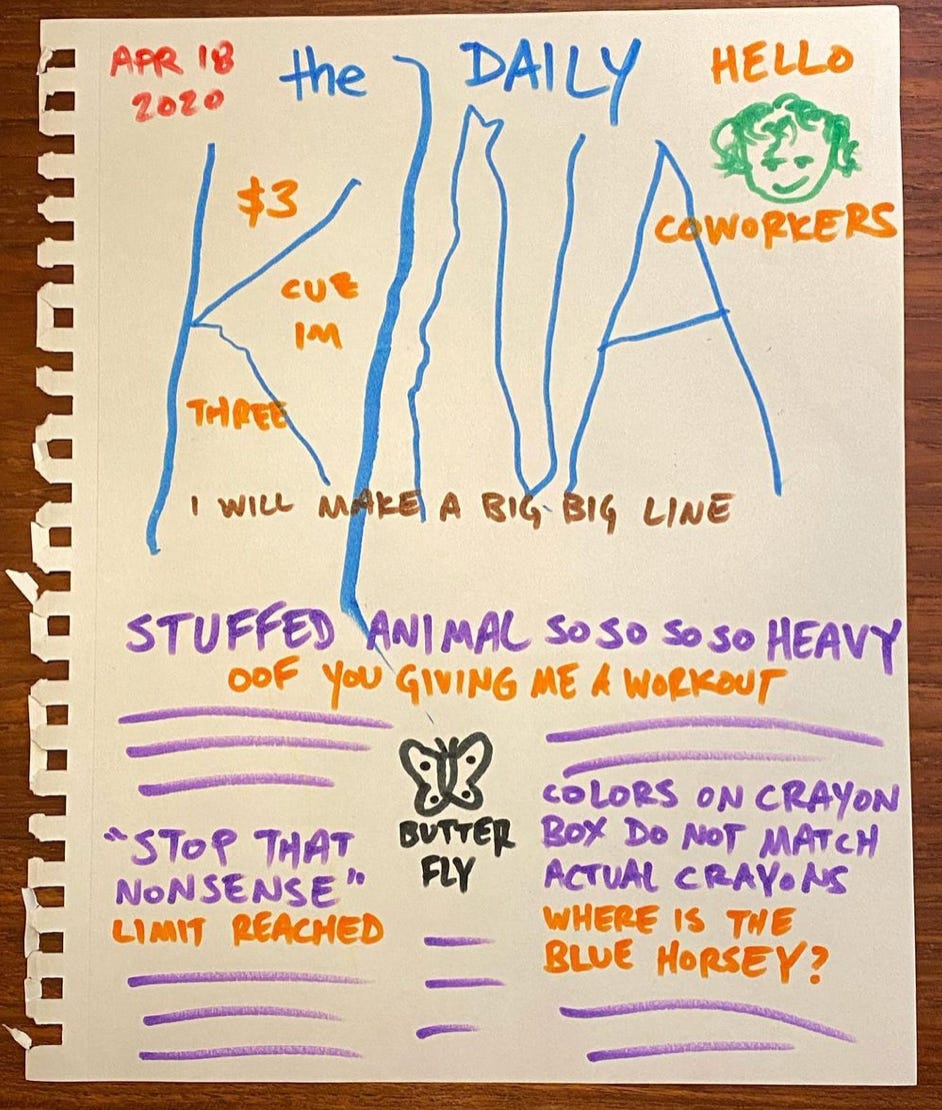 APR 18
2020
the DAILY
HELLO
COWORKERS
KINA
$3
CUZ
IM
THREE
I WILL MAKE A BIG BIG LINE
STUFFED ANIMAL SO SO SO SO HEAVY
OOF YOU GIVING ME A WORKOUT
"STOP THAT
NONSENSE"
LIMIT REACHED
BUTTER
FLY
COLORS ON CRAYON
BOX DO NOT MATCH
ACTUAL CRAYONS
WHERE IS THE
BLUE HORSEY?